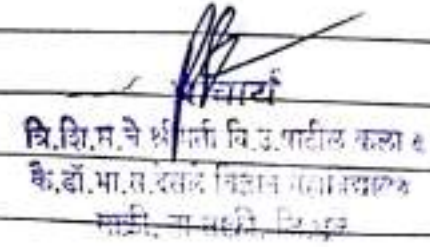 प्राचार्य
त्रि.शि.म.चे श्रीमती वि.उ.पाटील कला व
कै.डॉ.भा.स.देसले विज्ञान महाविद्यालय
साक्री, ता.साक्री, जि.धुळे